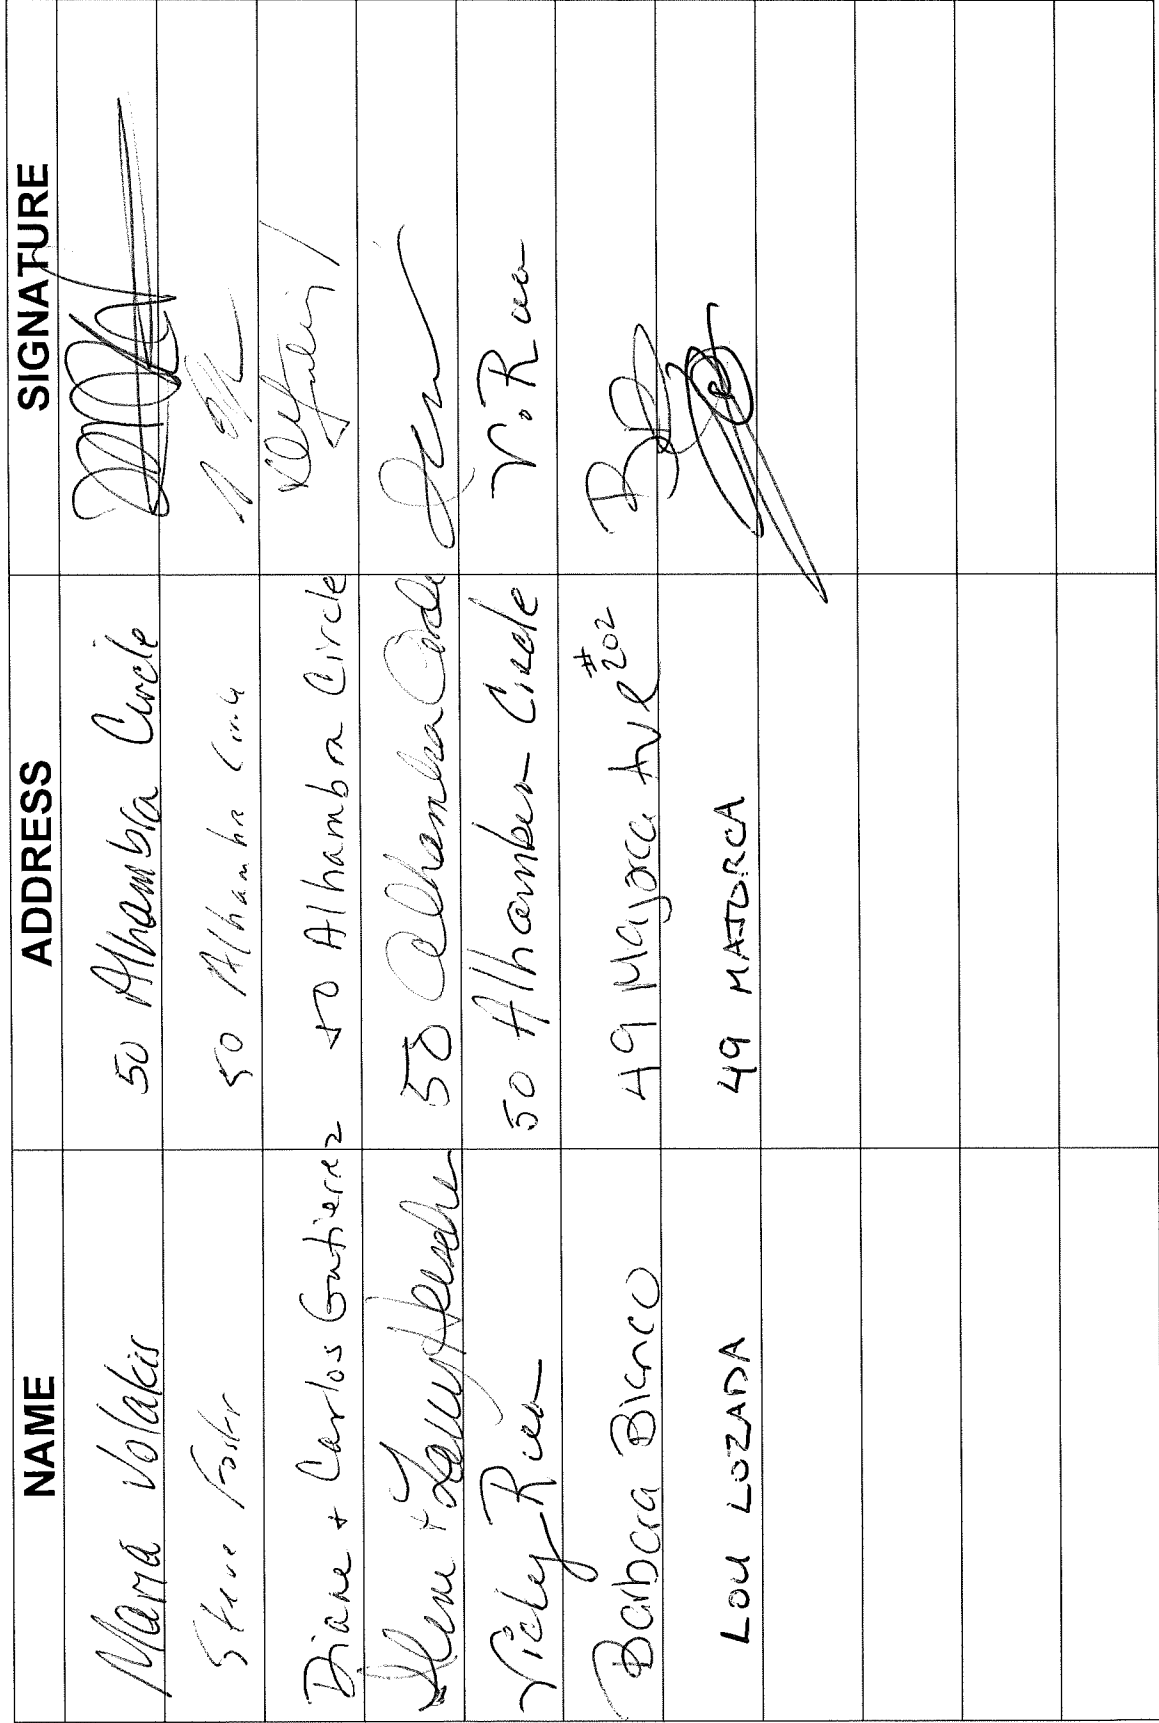 NAME ADDRESS SIGNATURE
Maria Volakis 50 Alhambra Circle
Steve Foster 50 Alhambra Circle
Diane + Carlos Gutierrez 50 Alhambra Circle
+ 50 Alhambra Circle
Vicky 50 Alhambra Circle V.
Barbara Bianco 49 Majorca Ave #202
LOU LOZADA 49 MAJORCA